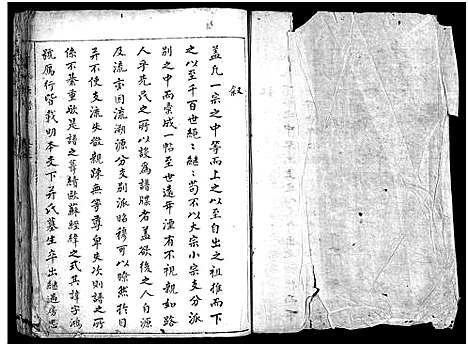 叙
蓋凡一宗之中等而上之以至自出之祖推而下
之以至千百世绝繼苟不以大宗小宗支分派
别之中而彙成一帖至世遠年湮有不視親如路
人乎先民之所以設為譜牒者蓋欲後之人自源
及流窮因流溯源分支别派昭穆可以瞭然於目
并不使支流失叙親疎無等尊卑失次則譜之所
係不綦重歟是譜之葺續歐蘇經緯之式其諱字
號雁行皆載明本支下并氏墓生卒出繼